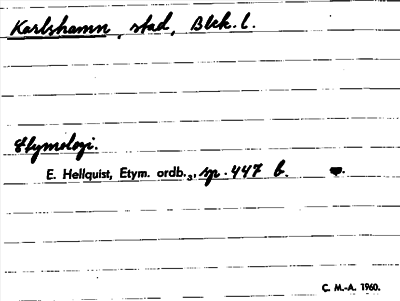 Karlshamn, stad, Blek. l.
Etymologi.
E. Hellquist, Etym. ordb.3, sp. 447 b.
C. M.-A. 1960.